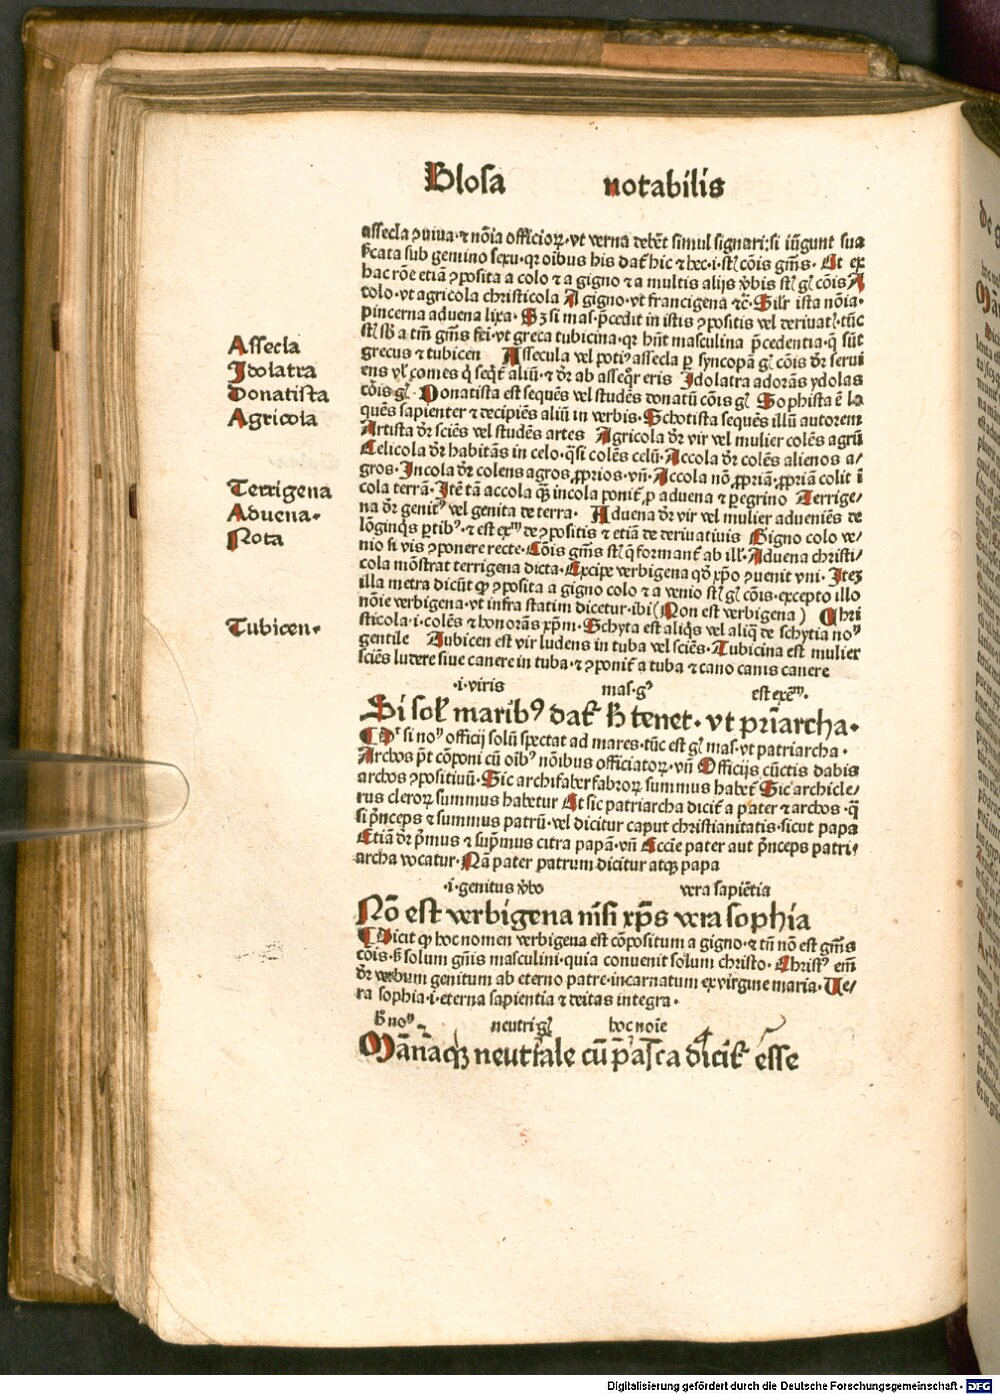 Glosa notabilis
assecla ꝯuiua · ⁊ nõia officioꝝ · vt verna debẽt simul signari: si iũgunt sua
ficata sub gemino sexu · qꝛ oibus his dat̃ hic ⁊ hec · i · st̃ cõis gñis · Et ex
hac rõe etiã ꝯposita a colo ⁊ a gigno ⁊ a multis alijs v̓bis st̃ gl̃ cõis A
colo · vt agricola christicola A gigno · vt francigena ⁊c̃ · Silr̃ ista nõia ·
pincerna aduena lixa · Sȝ si mas · p̃cedit in istis ꝯpositis vel deriuat̃ · tũc
st̃ sb̓ a tm̃ gñis fei · vt greca tubicina · qꝛ hñt masculina p̃cedentia · q̃ sũt
grecus ⁊ tubicen Assecula vel poti⁹ assecla ꝑ syncopã gl̃ cõis dr̃ serui
ens vl̓ comes q̓ seqt̃ aliũ · ⁊ dr̃ ab asseq̃r eris Idolatra adorãs ydolas
cõis gl̃ · Donatista est sequẽs vel studẽs donatũ cõis gl̃ Sophista ẽ lo
quẽs sapienter ⁊ decipiẽs aliũ in verbis · Scotista sequẽs illũ autorem
Artista dr̃ sciẽs vel studẽs artes Agricola dr̃ vir vel mulier colẽs agrũ
Celicola dr̃ habitãs in celo · q̃si colẽs celũ · Accola dr̃ colẽs alienos a/
gros · Incola dr̃ colens agros ꝓprios · vñ · Accola nõ ꝓpriã · ꝓpriã colit ĩ
cola terrã · Itẽ tã accola qȝ incola ponit̃ ꝓ aduena ⁊ ꝑegrino Terrige/
na dr̃ genit⁹ vel genita de terra · Aduena dr̃ vir vel mulier adueniẽs de
lõginqs ꝑtib⁹ · ⁊ est exm̃ de ꝯpositis ⁊ etiã de deriuatiuis Gigno colo ve/
nio si vis ꝯponere recte · Cõis gñis st̃ q̓ formant̃ ab ill̓ · Aduena christi/
cola mõstrat terrigena dicta · Excipe verbigena qđ xp̃o ꝯuenit vni · Itez
illa metra dicũt ꝙ ꝯposita a gigno colo ⁊ a venio st̃ gl̃ cõis · excepto illo
nõie verbigena · vt infra statim dicetur · ibi (Non est verbigena) Chri
sticola · i · colẽs ⁊ honorãs xp̃m · Schyta est aliqs vel aliq̃ de schytia no⁹
gentile Tubicen est vir ludens in tuba vel sciẽs · Tubicina est mulier
sciẽs ludere siue canere in tuba · ⁊ ꝯponit̃ a tuba ⁊ cano canis canere
Assecla
Idolatra
Donatista
Agricola
Terrigena
Aduena ·
Nota
Tubicen ·
· i · viris mas · g⁹ est exẽ᷑
Si sol̓ marib⁹ dat̃ h̓ tenet · vt pr̃iarcha ·
¶ Dt si no⁹ officij solũ spectat ad mares · tũc est gl̃ mas · vt patriarcha ·
Archos p̃t cõponi cũ oib⁹ nõibus officiatoꝝ · vñ Officijs cũctis dabis
archos ꝯpositiuũ · Sic archifaber fabroꝝ summus habet̃ Sic archicle/
rus cleroꝝ summus habetur Et sic patriarcha dicit̃ a pater ⁊ archos · q̃
si p̃nceps ⁊ summus patrũ · vel dicitur caput christianitatis · sicut papa
Etiã dr̃ p̃mus ⁊ sup̃mus citra papã · vñ Eccĩe pater aut p̃nceps patri/
archa vocatur · Nã pater patrum dicitur atqȝ papa
· i · genitus v̓bo vera sapiẽtia
Nõ est verbigena nisi xp̃s vera sophia
¶ Dicit ꝙ hoc nomen verbigena est cõpositum a gigno · ⁊ tñ nõ est gñis
cõis · s̓ solum gñis masculini · quia conuenit solum christo · Christ⁹ em̃
dr̃ verbum genitum ab eterno patre · incarnatum ex virgine maria · Ve/
ra sophia · i · eterna sapientia ⁊ deitas integra ·
h̓ no⁹ neutri gl̃ hoc noĩe
Mãnaqȝ neutrale cũ pasca dicit̃ esse
Digitalisierung gefördert durch die Deutsche Forschungsgemeinschaft - DFG